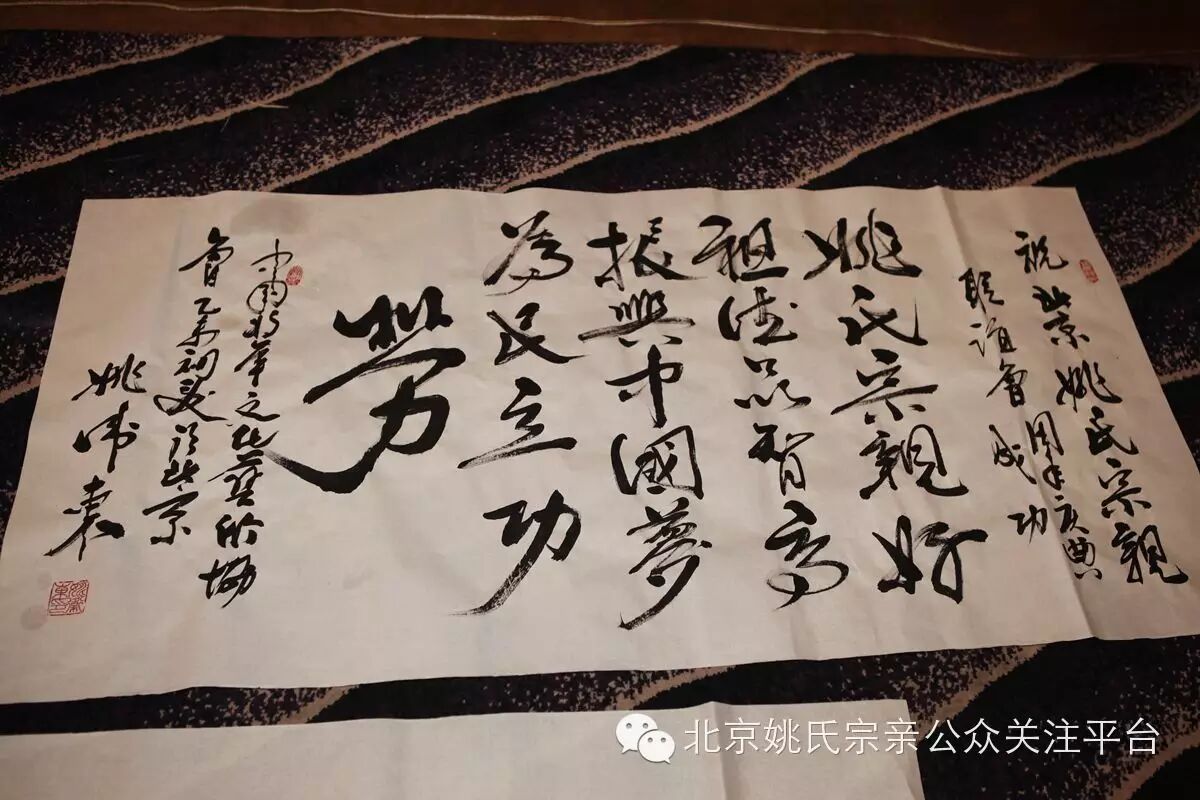 祝北京姚氏宗親
聯誼會周年庆典
成功
姚氏宗親好
祖德品智高
振興中國夢
為民立功
劳
中國將軍文化藝術協
會乙未初夏於北京
姚
北京姚氏宗亲公众关注平台